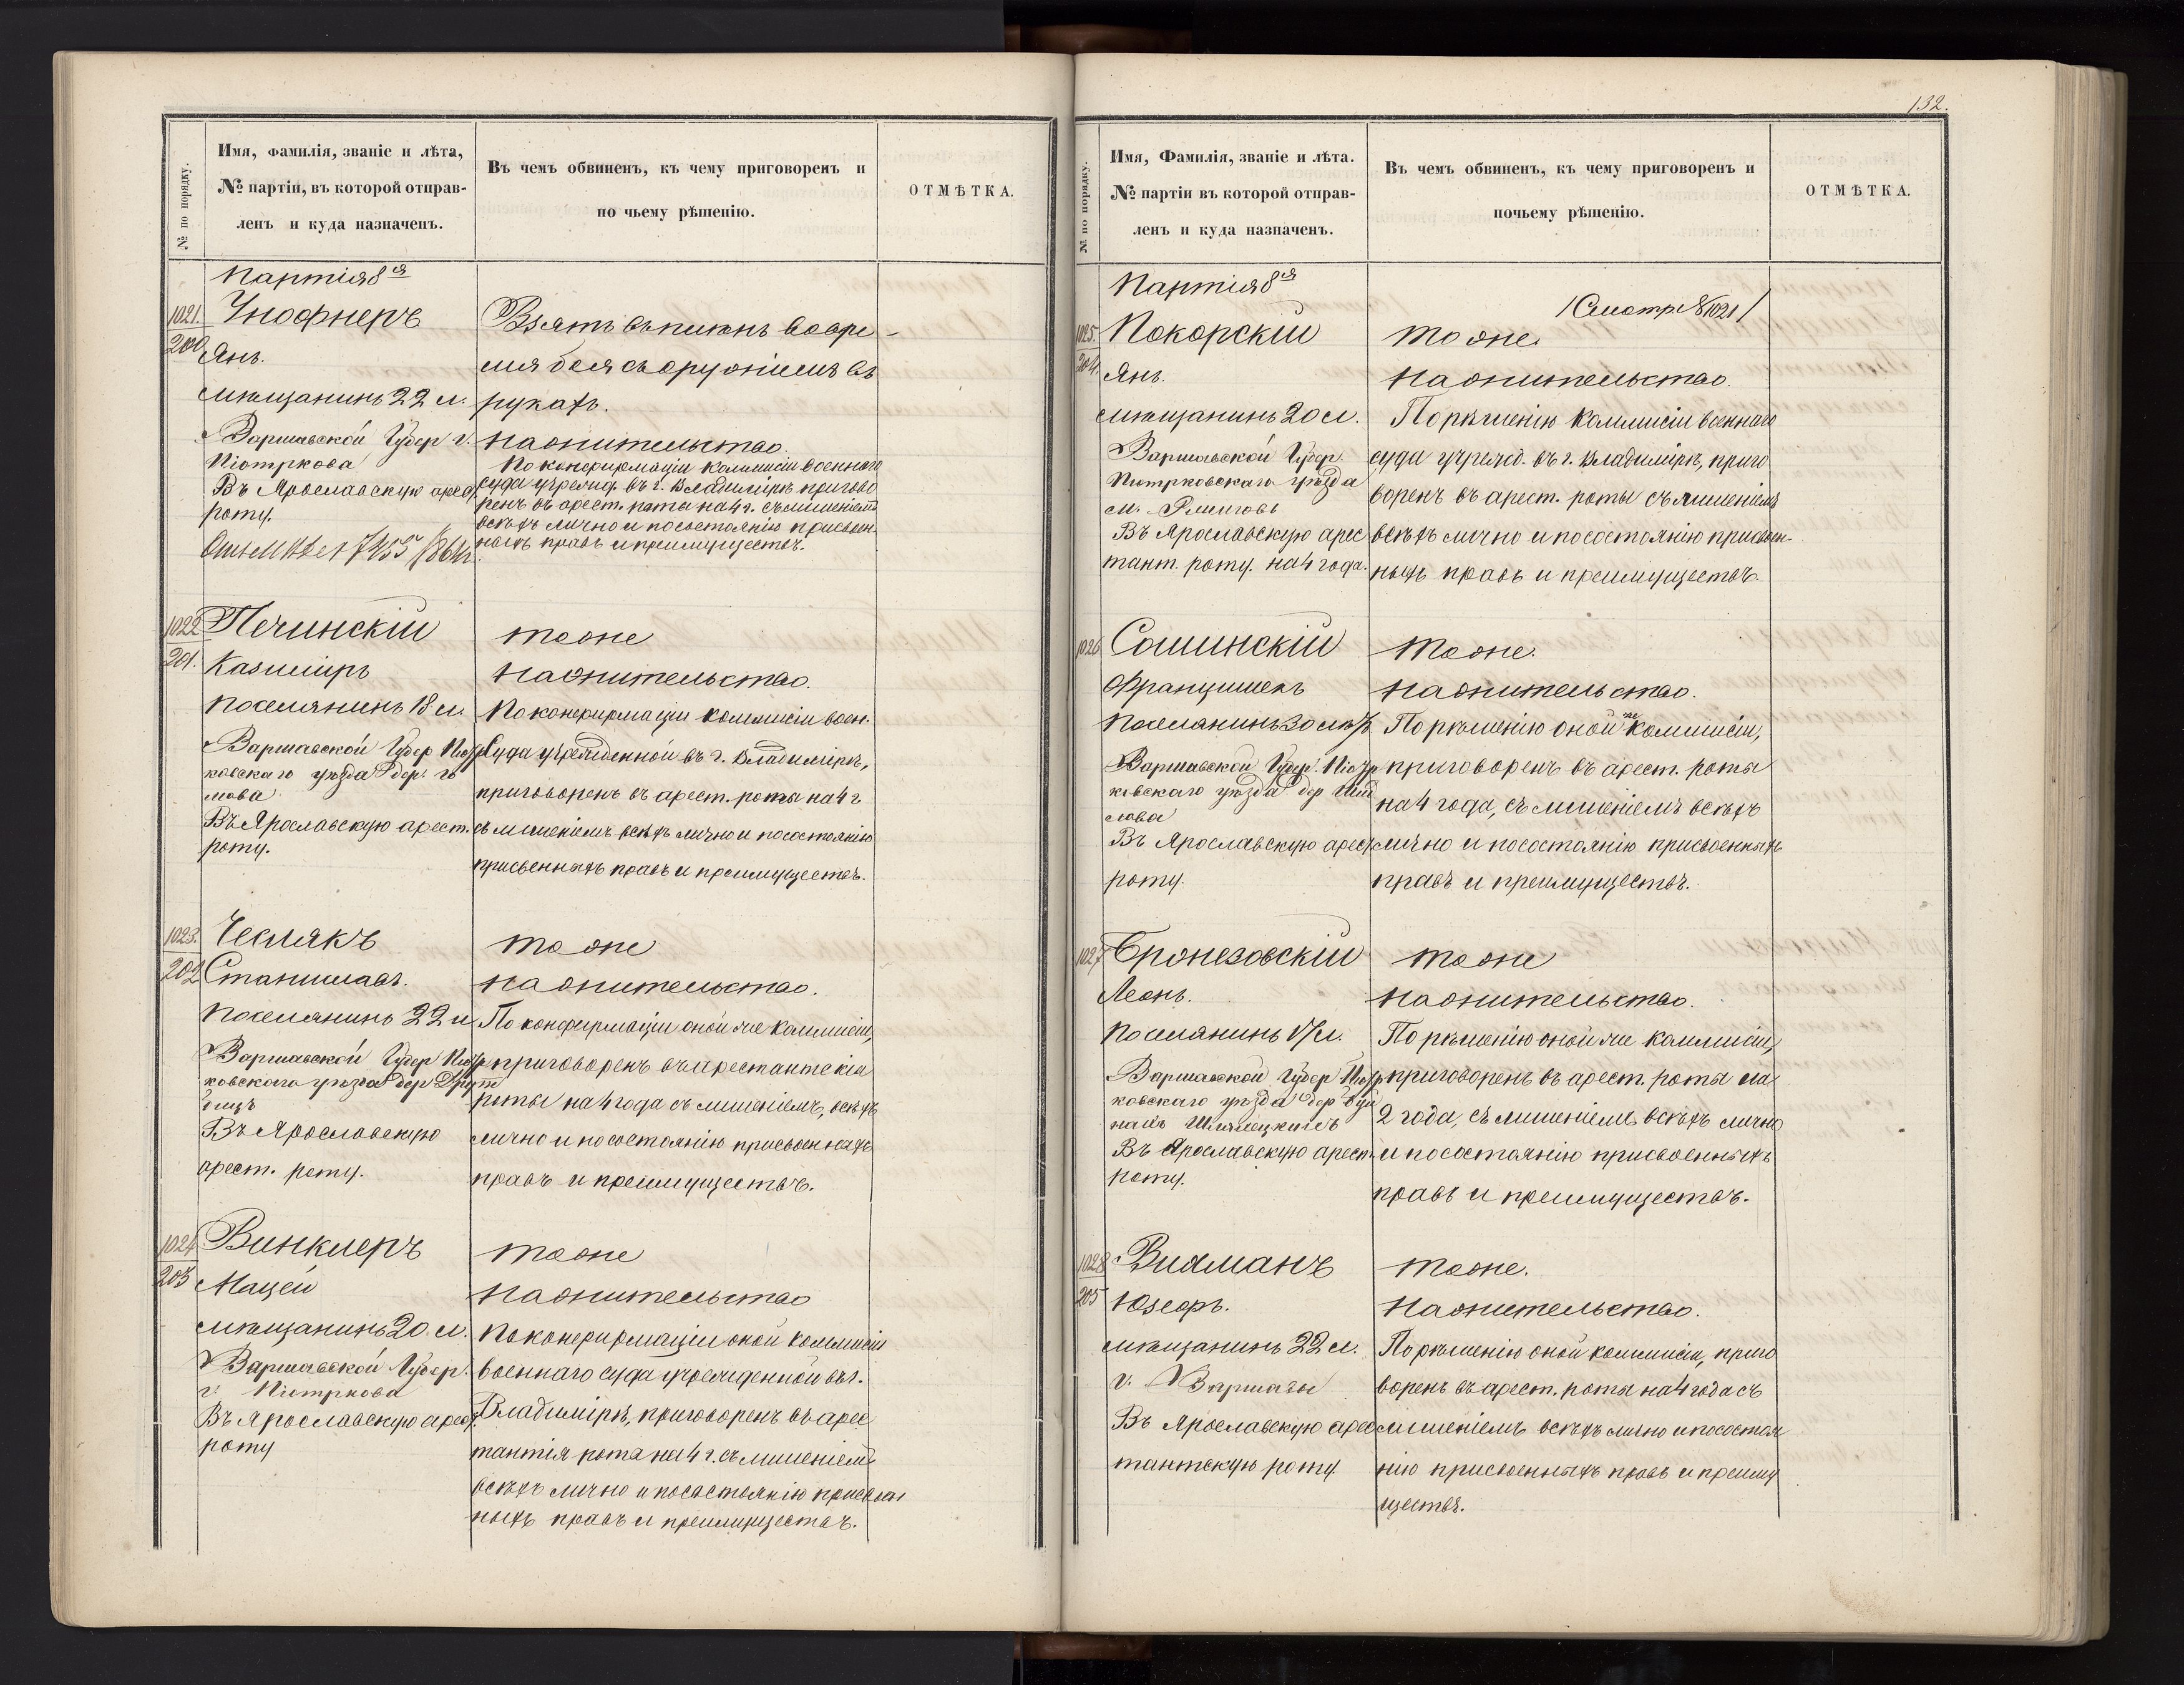 № по порядку.
Имя, Фамилія, званіе и лѣта,
№ партіи, въ которой отправ-
ленъ и куда назначенъ.
Въ чемъ обвиненъ, къ чему приговоренъ и
по чьему рѣшенію.
ОТМѢТКА.
Партія 8ая
1021.
200
Кнофнеръ
Янъ.
мѣщанинъ 22 л.
Варшавской Губер г.
Піотркова
Въ Ярославскую арест
роту.
Взятъ въ плѣнъ во вре-
мя боя съ оружіемъ въ
рукахъ.
На жительство.
По конфирмаціи коммисіи военнаго
суда учрежд. въ г. Владимірѣ пригово
ренъ въ арест. роты на 4 г. съ лишеніемъ
всѣхъ лично и посостоянію присвоен-
ныхъ правъ и преимуществъ.
1022
201.
Печинскій
Казиміръ
Поселянинъ 18 л.
Варшавской Губер Піотр
ковскаго уѣзда дер.
Въ Ярославскую арест.
роту.
тоже
На жительство.
По конфирмаціи коммисіи воен.
Суда учрежденной въ г. Владимірѣ,
приговоренъ въ арест. роты на 4 г
съ лишеніемъ всѣхъ лично и посостоянію
присвенныхъ правъ и преимуществъ.
1023.
202
Чеслякъ
Станиславъ.
Поселянинъ 22 л
Варшавской Губер Піотр
ковскаго уѣзда дер
Въ Ярославскую
арест. роту.
тоже
На жительство.
По конфирмаціи оной же коммисіи,
приговоренъ въ арестантскія
роты на 4 года съ лишеніемъ, всѣхъ
лично и посостоянію присвоенныхъ
правъ и преимуществъ.
1024
203
Винклеръ
Мацей
мѣщанинъ 20 л.
Варшавской Губер.
г. Піотркова
Въ Ярославскую арест.
роту
тоже
На жительство
По конфирмаціи оной коммисіи
военнаго суда учрежденной въ г.
Владимірѣ, приговоренъ въ арес
тантія рота на 4 г. съ лишеніемъ
всѣхъ лично и посостоянію присвоен
ныхъ правъ и преимуществъ.
132.
№ по порядку.
Имя, Фамилія, званіе и лѣта.
№ партіи въ которой отправ-
ленъ и куда назначенъ.
Въ чемъ обвиненъ, къ чему приговоренъ и
почьему рѣшенію.
ОТМѢТКА.
Партія 8ая
/Смотр. № 1021/
1025.
204.
Покорскій
Янъ.
мѣщанинъ 20 л.
Варшавской Губер.
Піотрковскаго уѣзда
м.
Въ Ярославскую арес
тант. роту. на 4 года.
тоже.
На жительство.
По рѣшенію Коммисіи военнаго
суда учрежд. въ г. Владимірѣ, приго
воренъ въ арест. роты съ лишеніемъ
всѣхъ лично и посостоянію присвоен-
ныхъ правъ и преимуществъ.
1026
Сошинскій
Францишекъ
Поселянинъ 30 лѣтъ
Варшавской Губер. Піотр
ковскаго уѣзда дер
Въ Ярославскую арест
роту.
тоже.
На жительство.
По рѣшенію оной же Коммисіи,
приговоренъ въ арест. роты
на 4 года, съ лишеніемъ всѣхъ
лично и посостоянію присвоенныхъ
правъ и преимуществъ.
1027
Бронезовскій
Леонъ.
Поселянинъ 17 л.
Варшавской Губер Піотр
ковскаго уѣзда дер
Въ Ярославскую арест.
роту.
тоже
На жительство.
По рѣшенію оной же коммисіи,
приговоренъ въ арест. роты на
2 года, съ лишеніемъ всѣхъ лично
и посостоянію присвоенныхъ
правъ и преимуществъ.
1028
205
Вилманъ
Юзефъ.
мѣщанинъ 22 л.
г. Варшавы
Въ Ярославскую арес
тантскую роту
тоже.
На жительство.
По рѣшенію оной коммисіи, приго
воренъ въ арест. роты на 4 года съ
лишеніемъ всѣхъ лично и посостоя
нію присвоенныхъ правъ и преиму
ществъ.